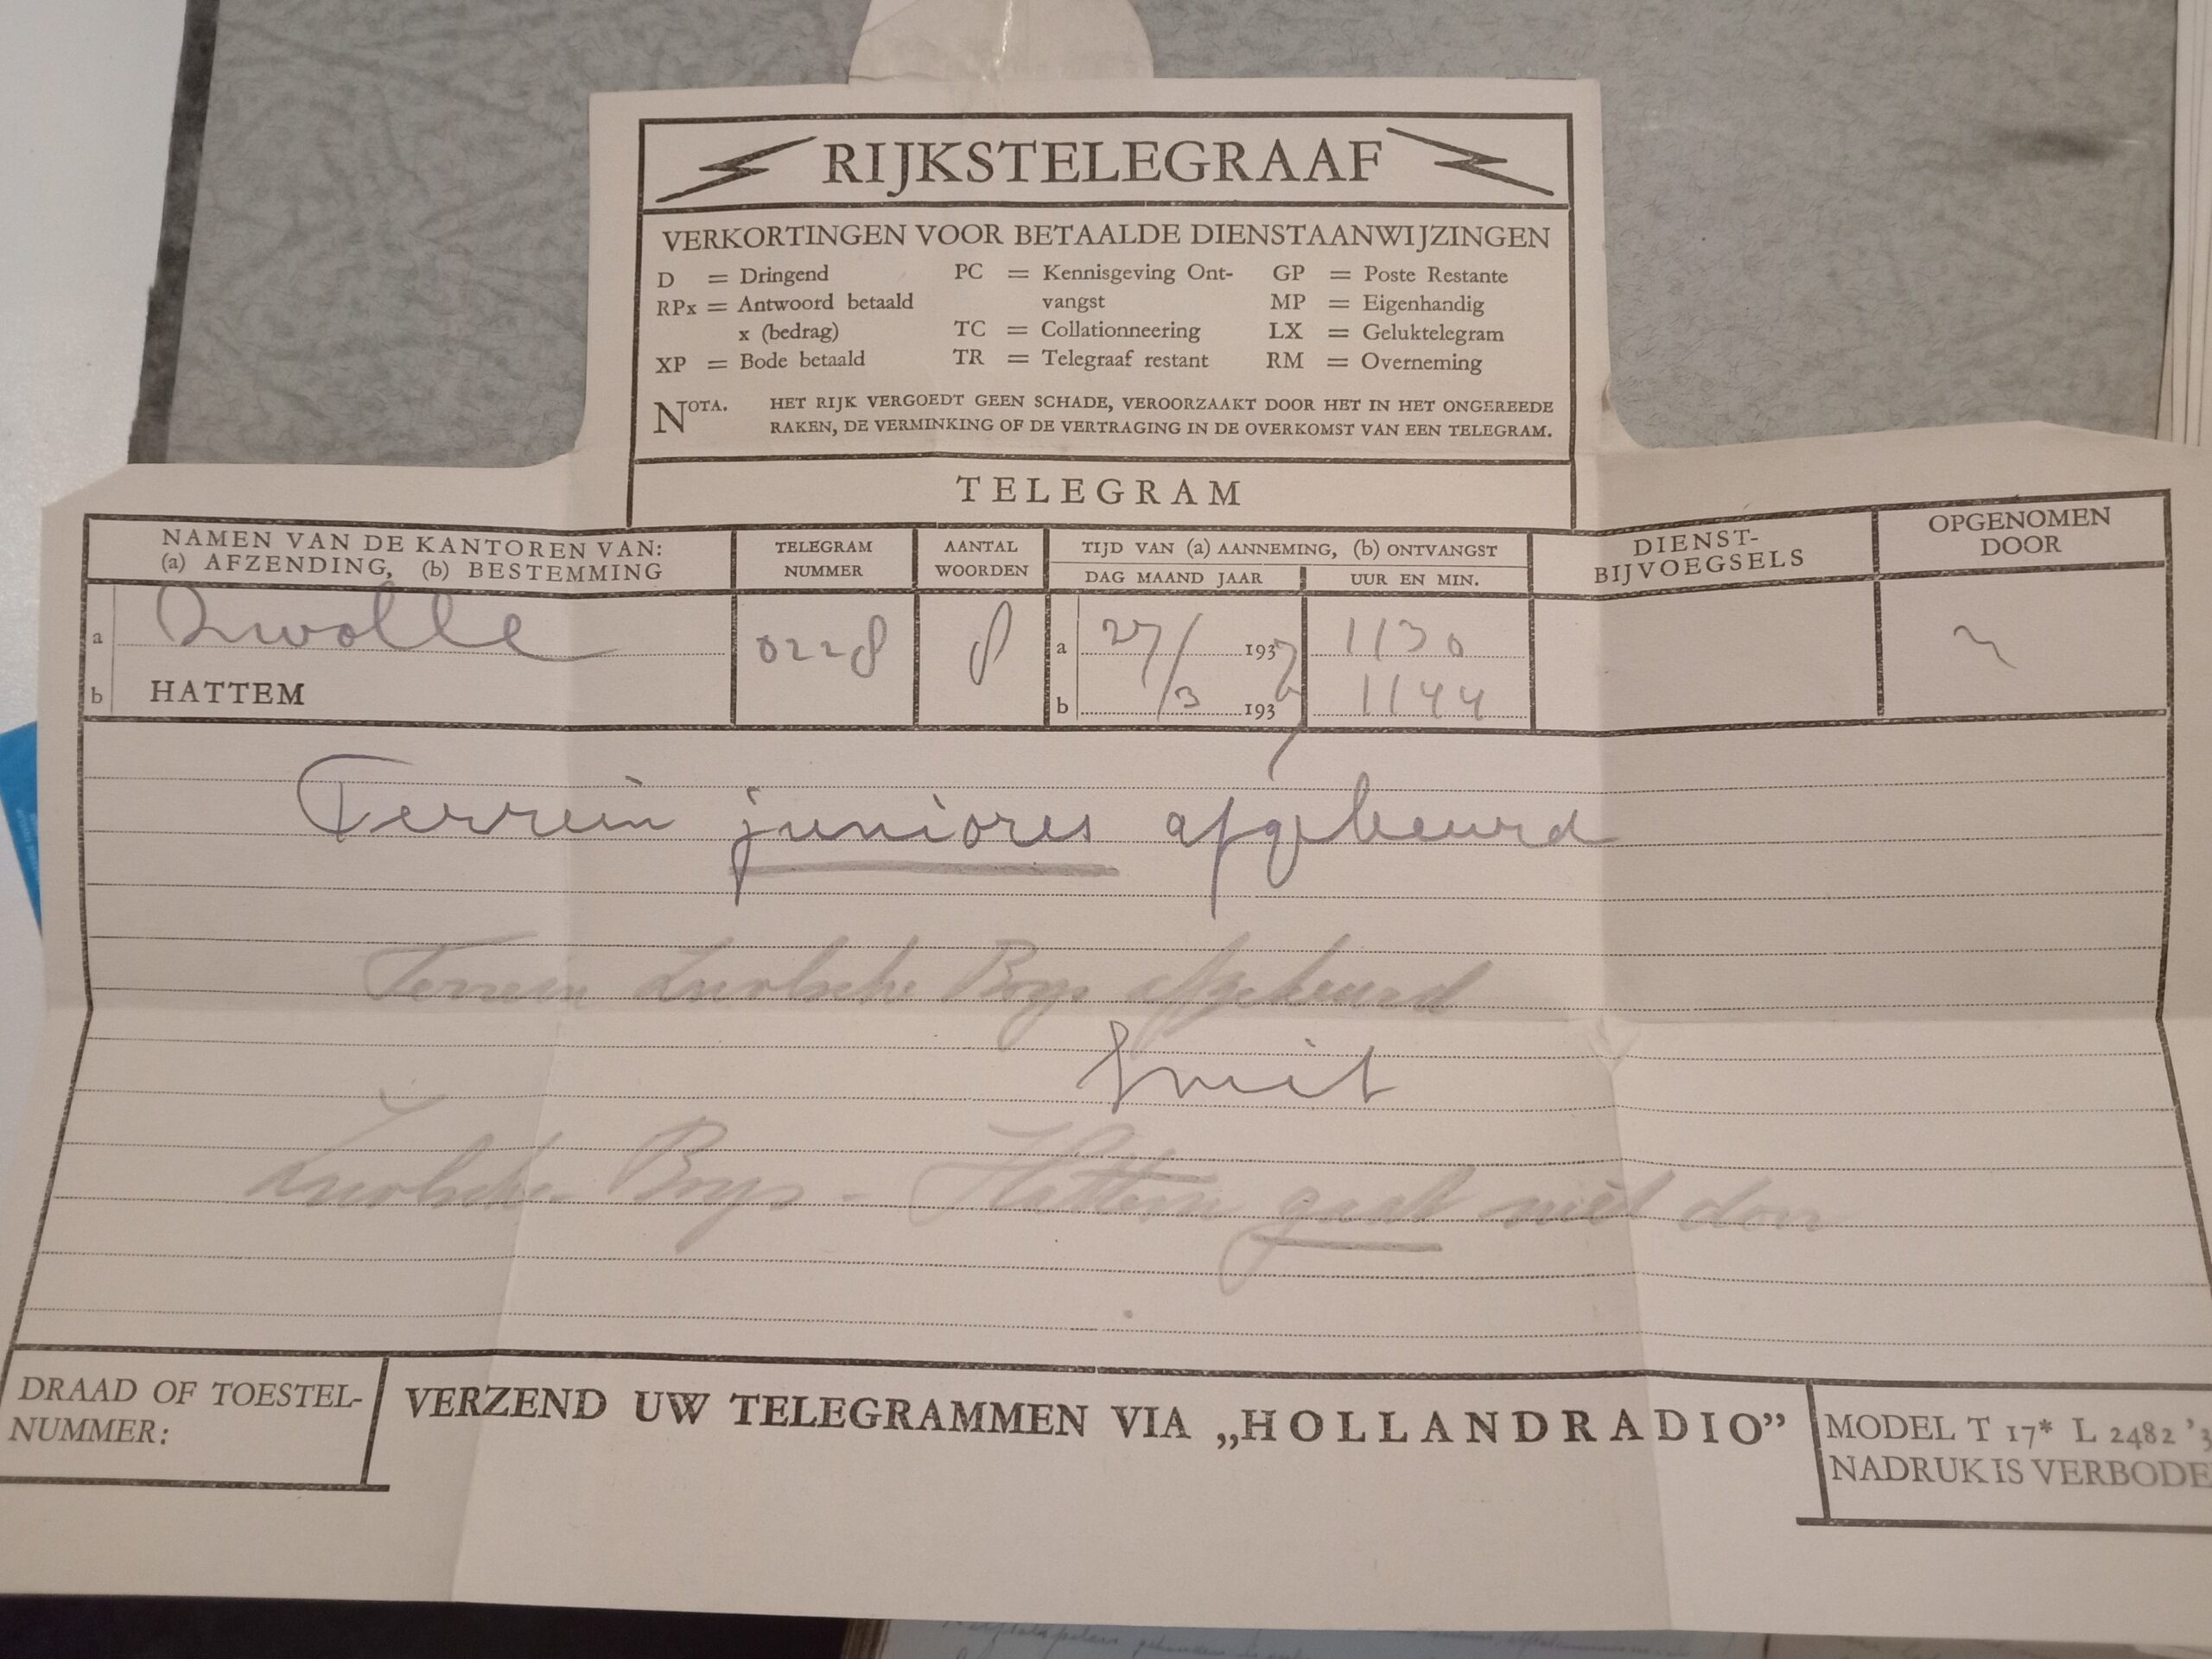 RIJKSTELEGRAAF
VERKORTINGEN VOOR BETAALDE DIENSTAANWIJZINGEN
D = Dringend PC = Kennisgeving Ont- GP = Poste Restante
RPx = Antwoord betaald vangst MP = Eigenhandig
x (bedrag) TC = Collationneering LX = Geluktelegram
XP = Bode betaald TR = Telegraaf restant RM = Overneming
NOTA. HET RIJK VERGOEDT GEEN SCHADE, VEROORZAAKT DOOR HET IN HET ONGEREEDE
RAKEN, DE VERMINKING OF DE VERTRAGING IN DE OVERKOMST VAN EEN TELEGRAM.
TELEGRAM
NAMEN VAN DE KANTOREN VAN: TELEGRAM AANTAL TIJD VAN (a) AANNEMING, (b) ONTVANGST DIENST- OPGENOMEN
(a) AFZENDING, (b) BESTEMMING NUMMER WOORDEN DAG MAAND JAAR UUR EN MIN. BIJVOEGSELS DOOR
a Zwolle 0228 8 a 27/ 1937 1130
b HATTEM b /3 193 1144
Terrein juniores afgekeurd
Terrein Zwolsche Boys afgekeurd
Smit
Zwolsche Boys - Hattem gaat niet door
DRAAD OF TOESTEL-
NUMMER:
VERZEND UW TELEGRAMMEN VIA „HOLLANDRADIO”
MODEL T 17* L 2482 '3
NADRUK IS VERBODE